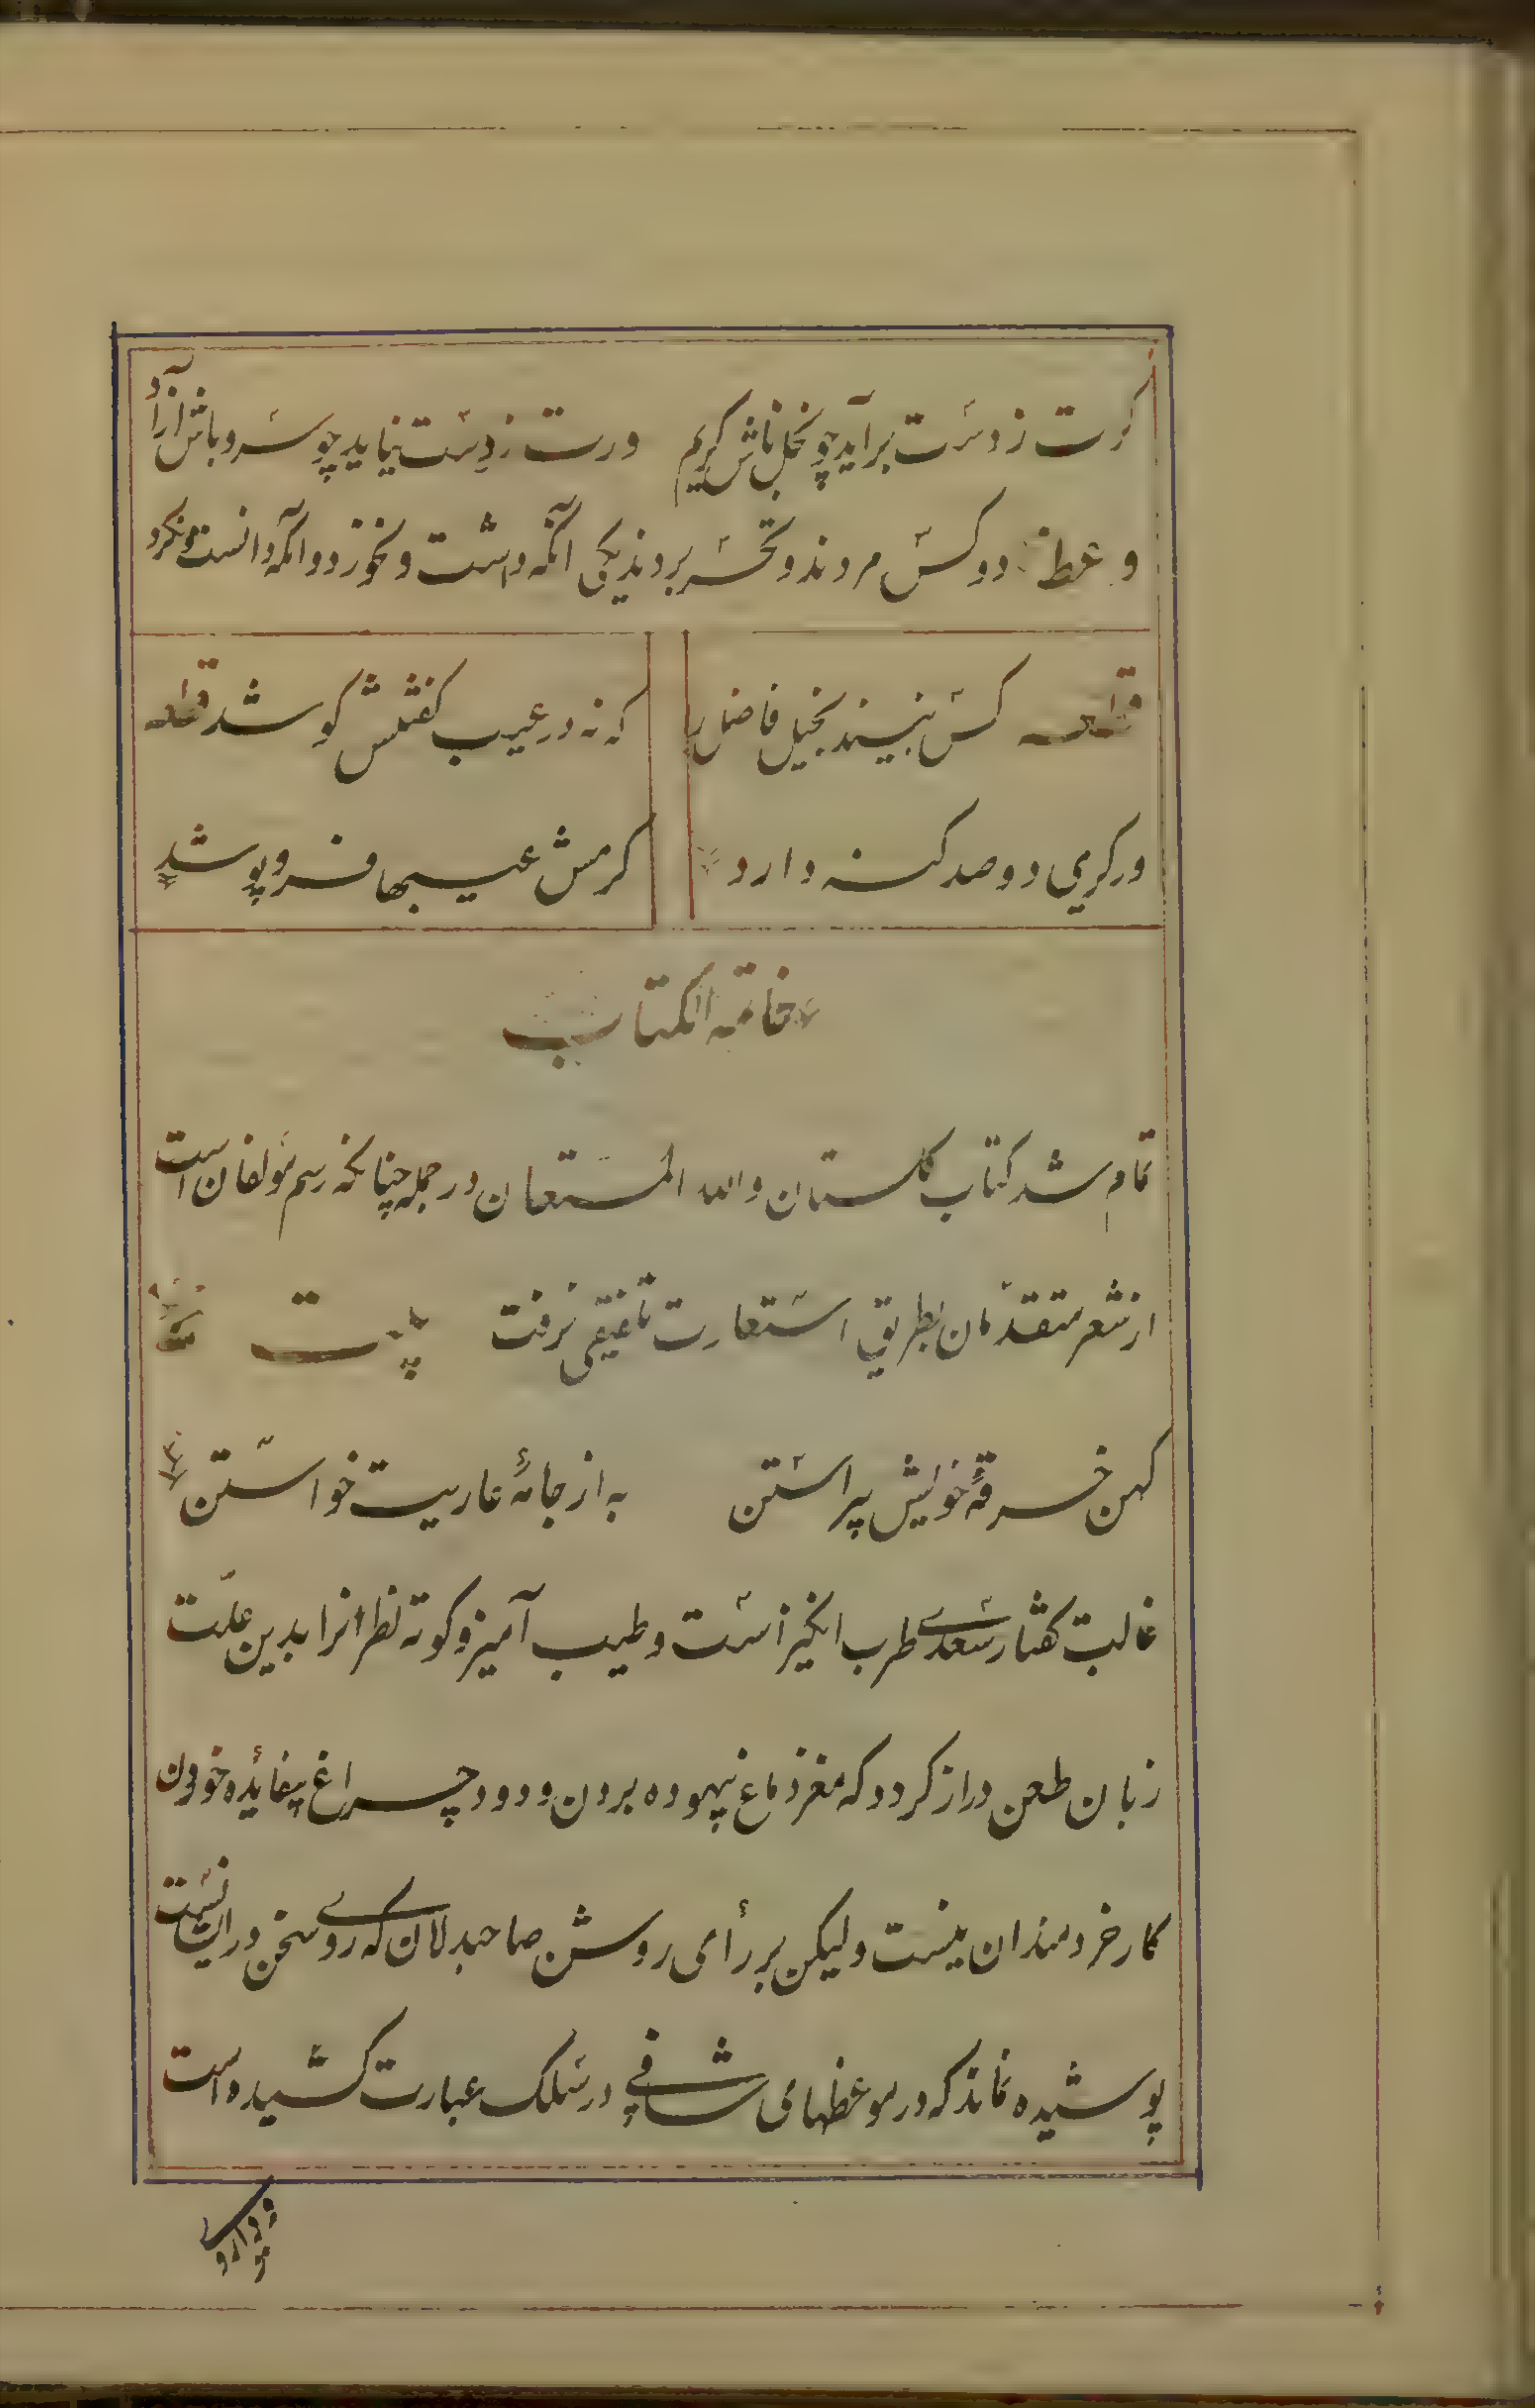 کرت ز دست برآید چو نخل باش کریم ورت ز دست نیاید چو سرو باش آزاد
وعظ دو کس مردند و تحسر بردند یکی آنکه داشت و نخورد و آنکه دانست و نکرد
قطعه کس نبیند بخیل فاضل را که نه در عیب کفتنش کوشد قطعه
ور کریمی دو صد کنه دارد کرمش عیبها فرو پوشد
خاتمه الکتاب
تمام شد کتاب کلستان والله المستعان در جمله چنانکه رسم مؤلفان است
از شعر متقدمان بطریق استعارت تلفیقی نرفت بیت
کهن خرقهٔ خویش پیراستن به از جامهٔ عاریت خواستن
غالب کفتار سعدی طرب انکیز است و طیب آمیز و کوته نظرانرا بدین علت
زبان طعن دراز کردد که مغز دماغ بیهوده بردن و دود چراغ بیفایده خوردن
کار خردمندان نیست ولیکن بر رأی روشن صاحبدلان که روی سخن در ایشانست
پوشیده نماند که در موعظهای شافی در سلک عبارت کشیده است
و داروی